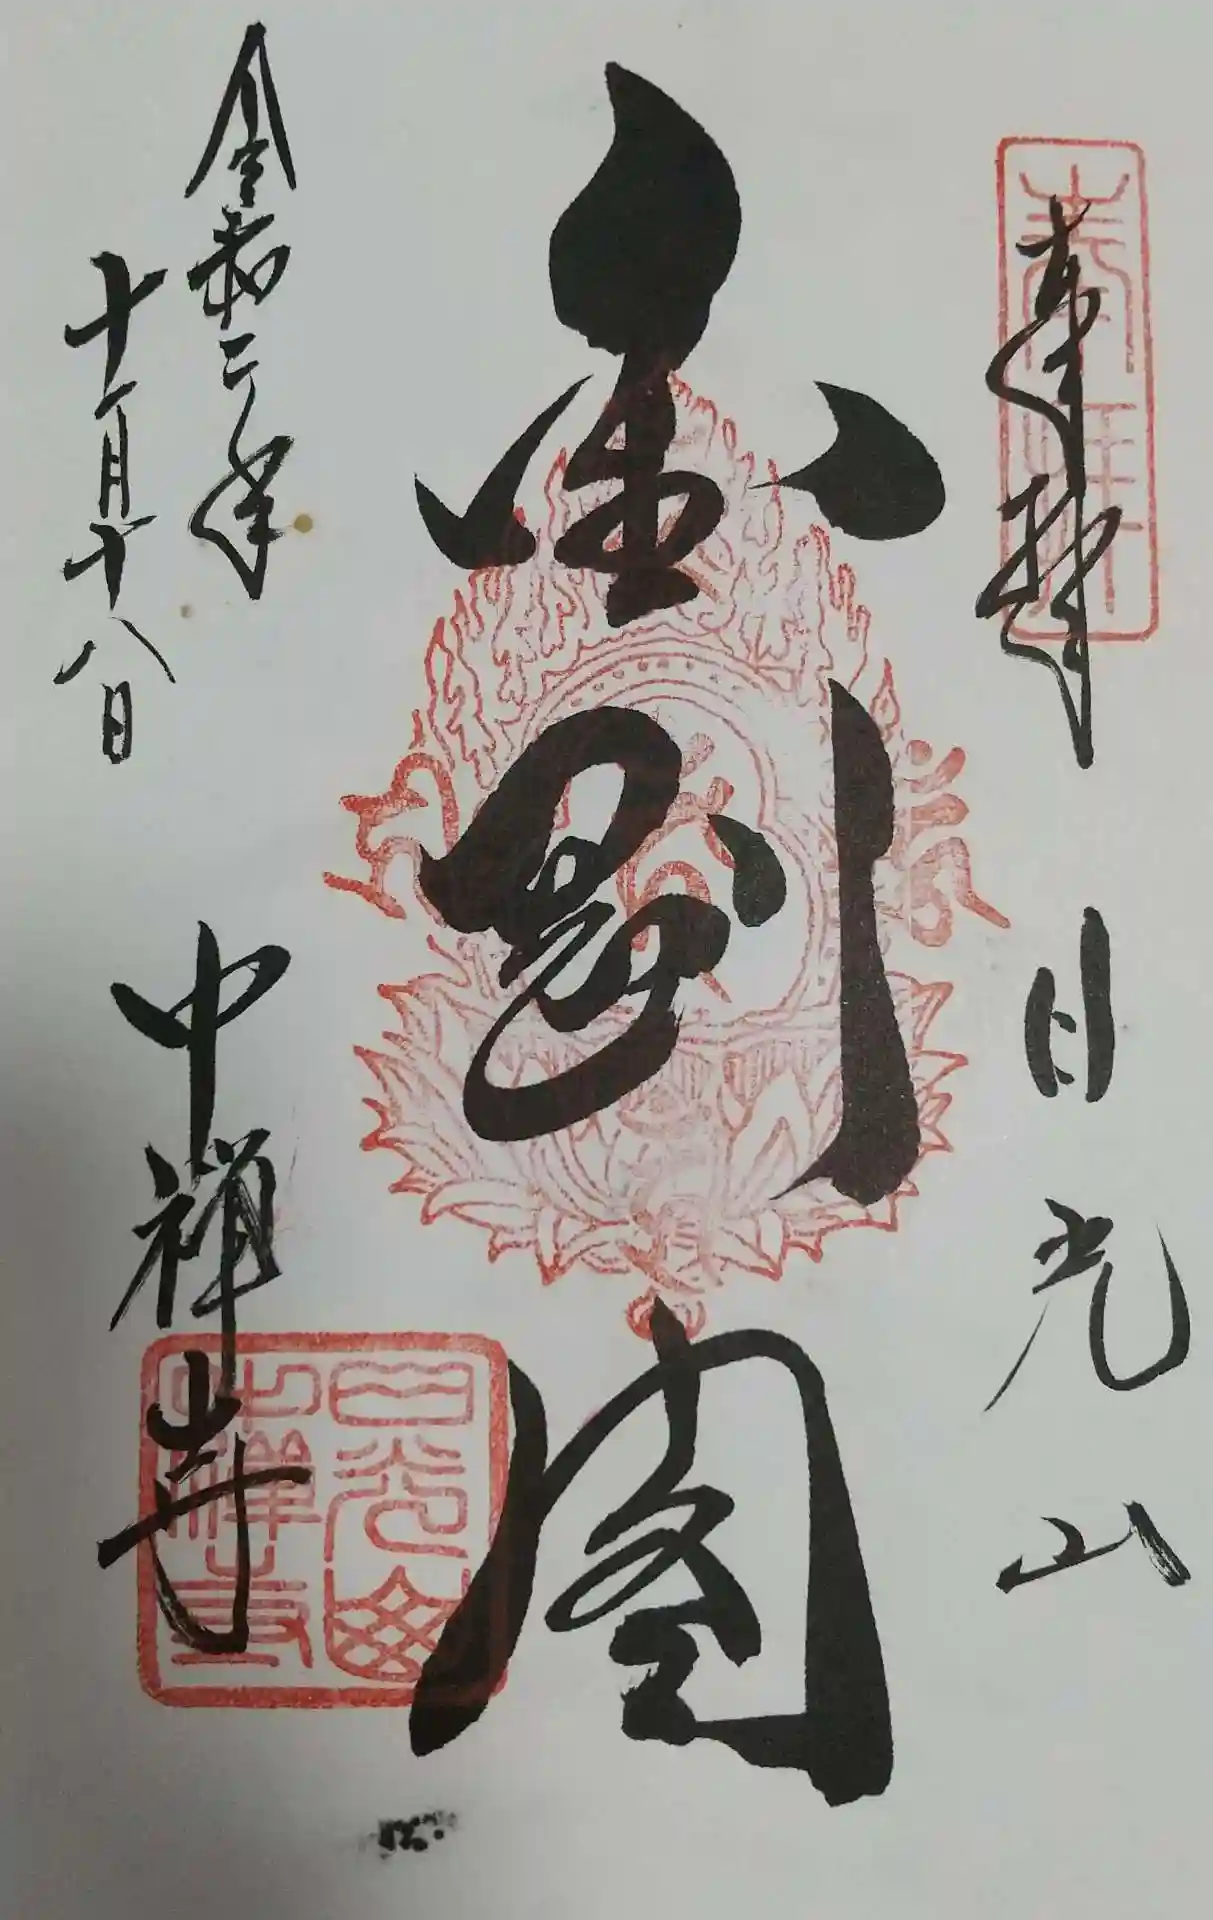 奉拝
日光山
金剛閣
令和二年
十一月十八日
中禅寺
日光山
中禅寺